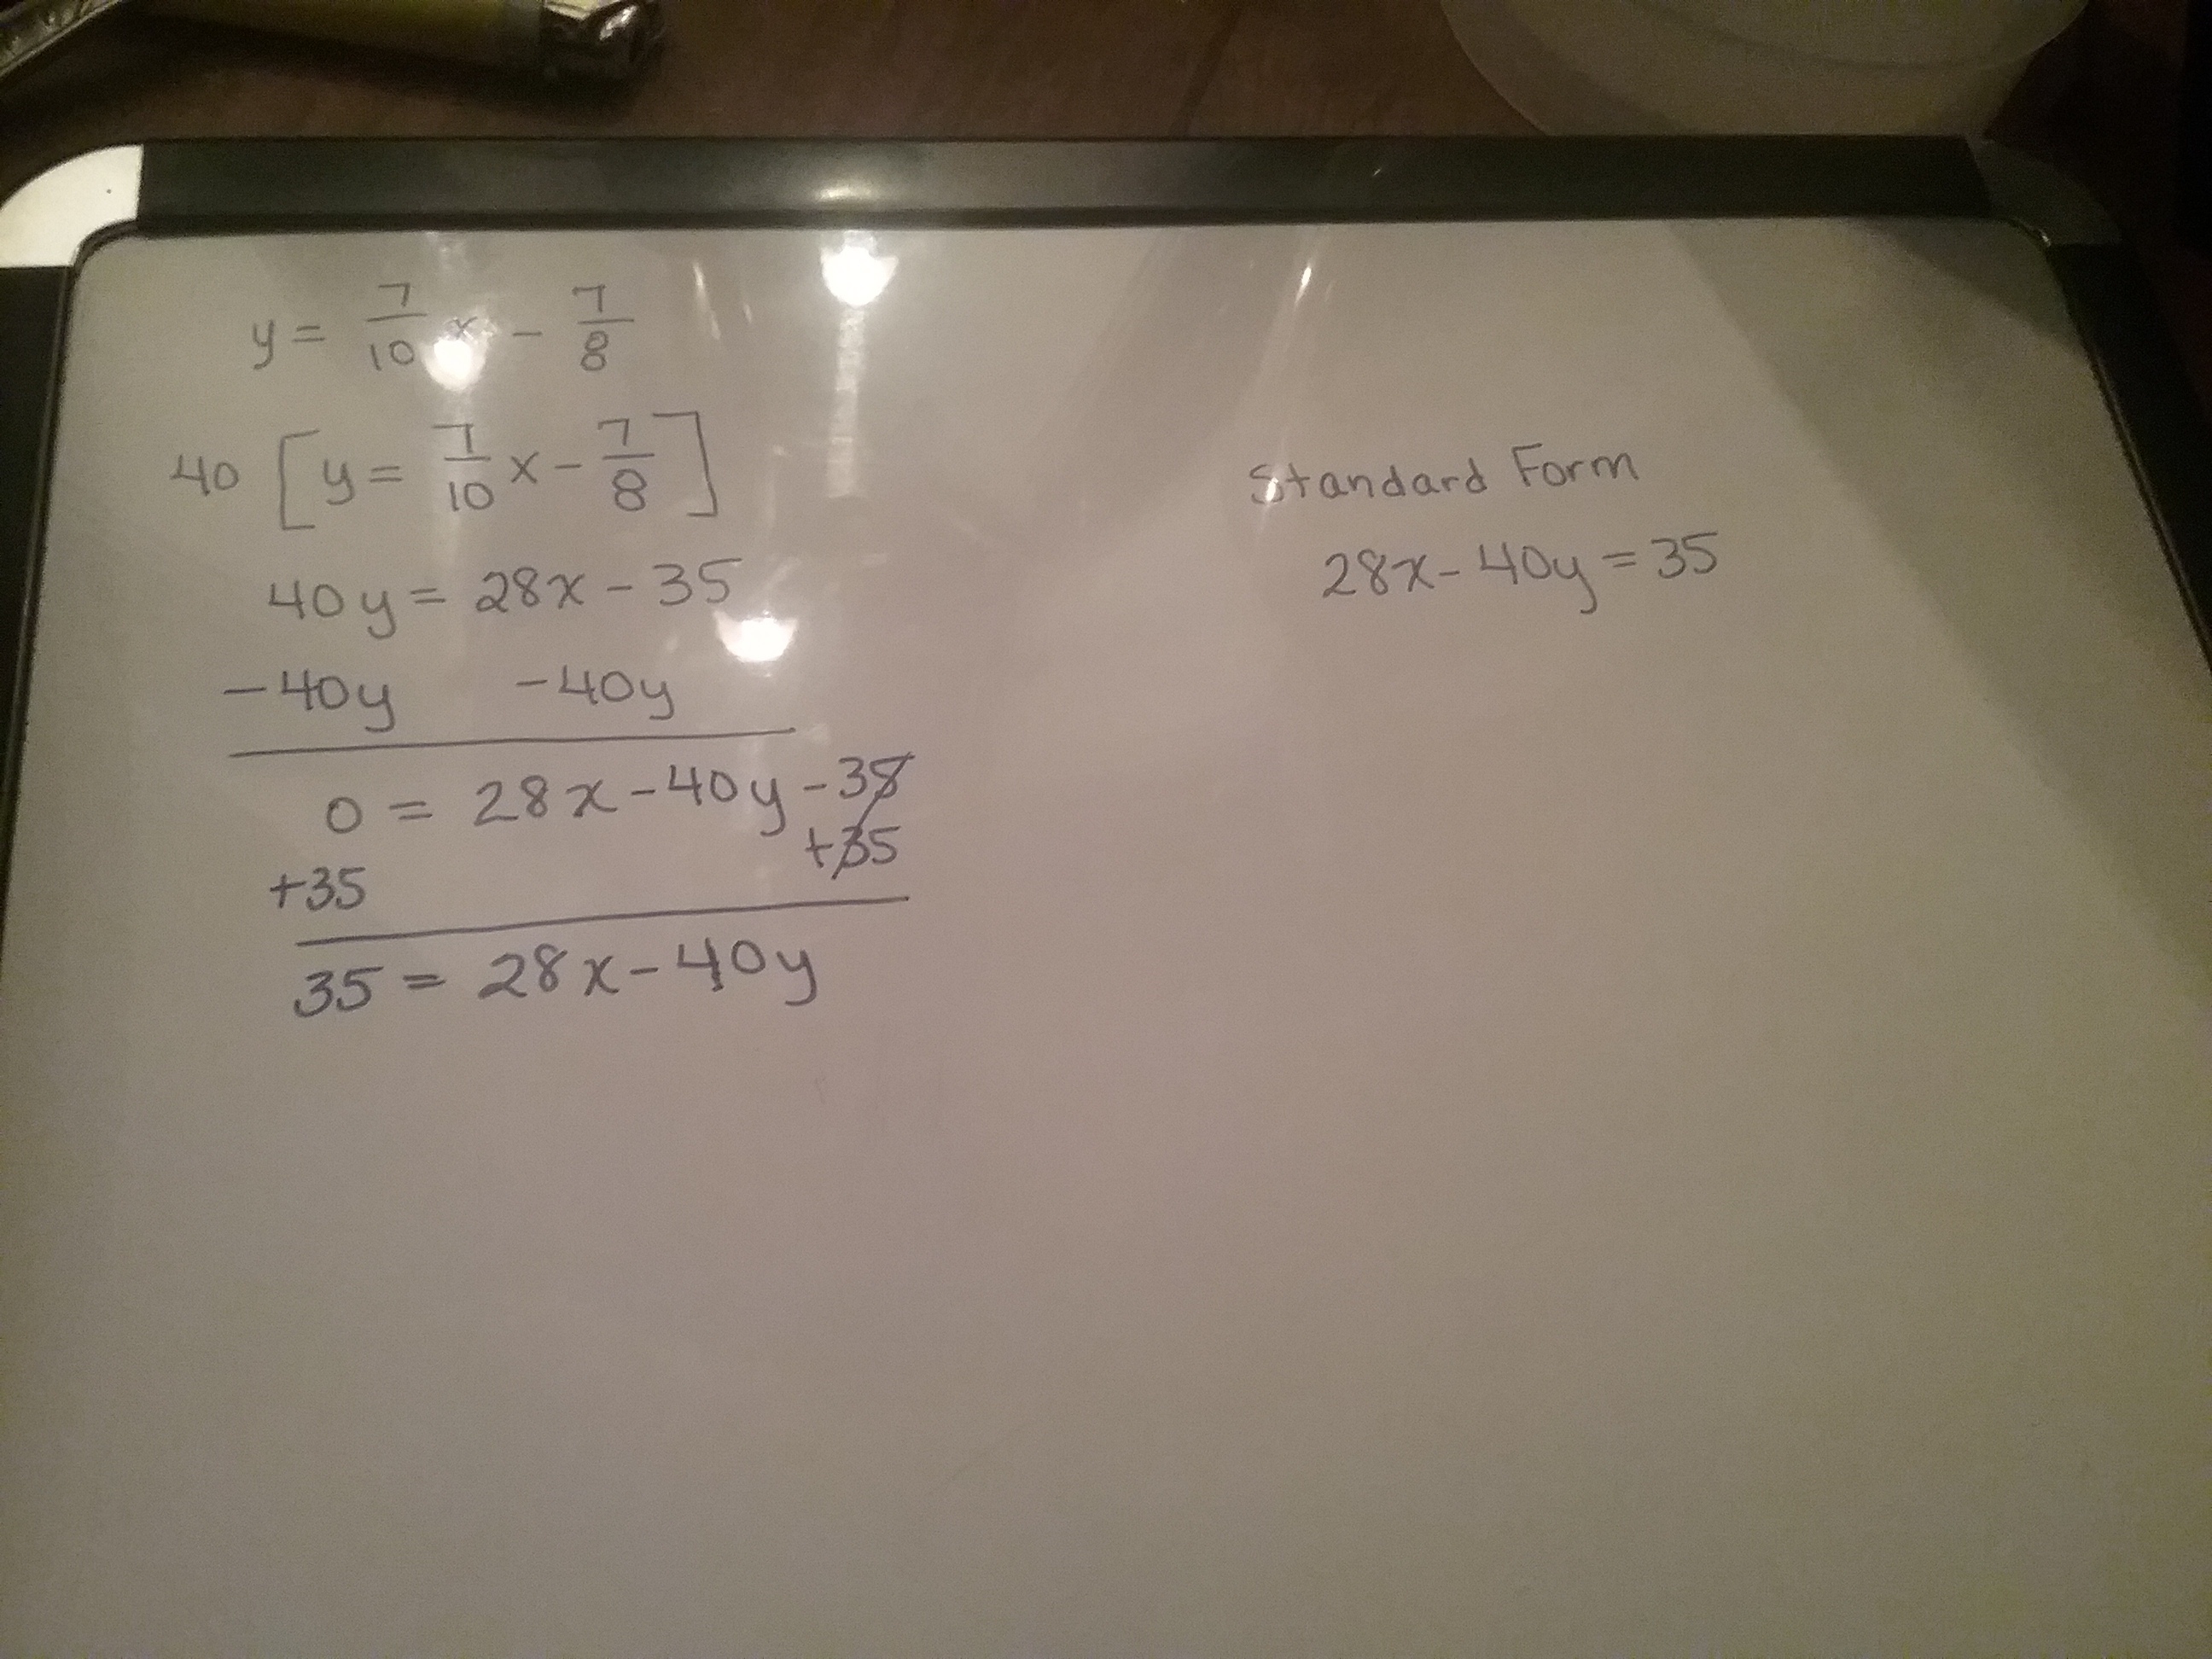 y = 7/10 x - 7/8
40 [y = 7/10 x - 7/8]
40y = 28x - 35
-40y -40y
0 = 28x - 40y - 35
+35 +35
35 = 28x - 40y
Standard Form
28x - 40y = 35